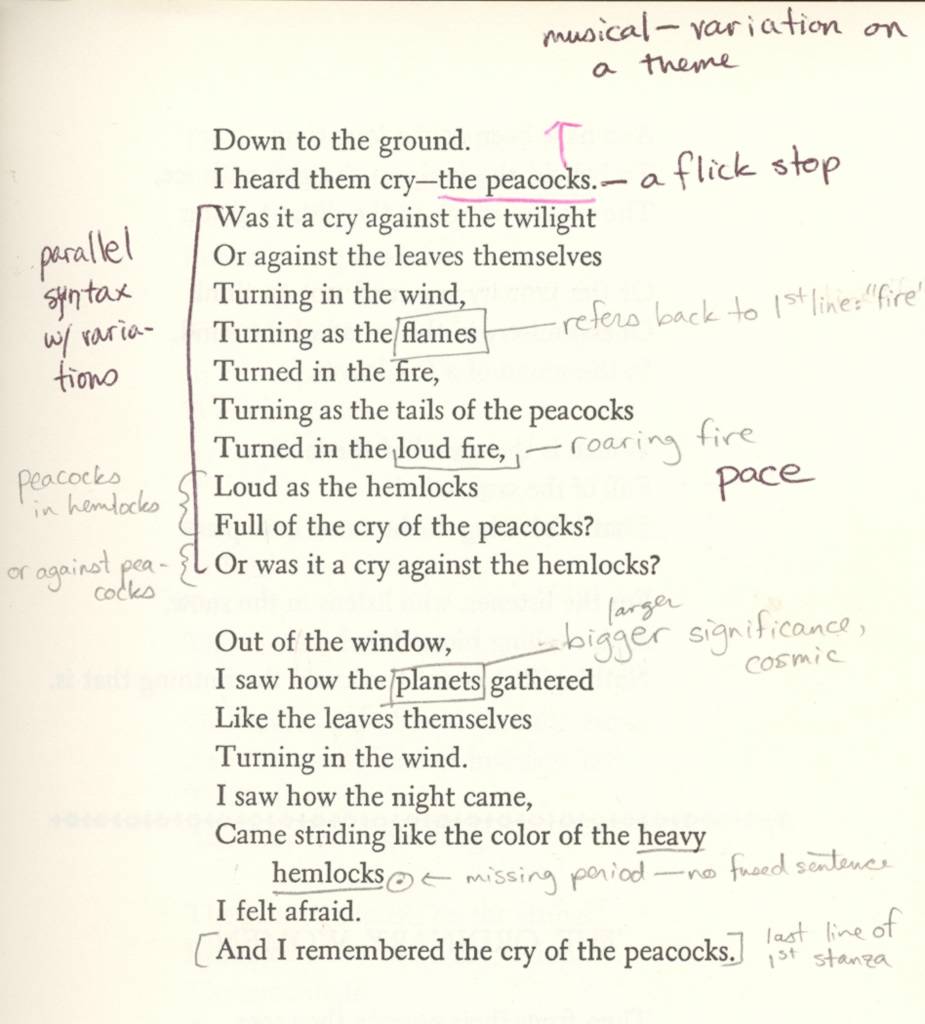 musical – variation on
a theme
Down to the ground.
I heard them cry—the peacocks. – a flick stop
Was it a cry against the twilight
Or against the leaves themselves
parallel
syntax
w/ varia-
tions
Turning in the wind,
Turning as the flames refers back to 1st line: "fire"
Turned in the fire,
Turning as the tails of the peacocks
Turned in the loud fire, – roaring fire
pace
peacocks
in hemlocks
Loud as the hemlocks
Full of the cry of the peacocks?
or against pea-
cocks
Or was it a cry against the hemlocks?
larger
bigger significance,
cosmic
Out of the window,
I saw how the planets gathered
Like the leaves themselves
Turning in the wind.
I saw how the night came,
Came striding like the color of the heavy
hemlocks. ← missing period – no fused sentence
I felt afraid.
[And I remembered the cry of the peacocks.] last line of
1st stanza